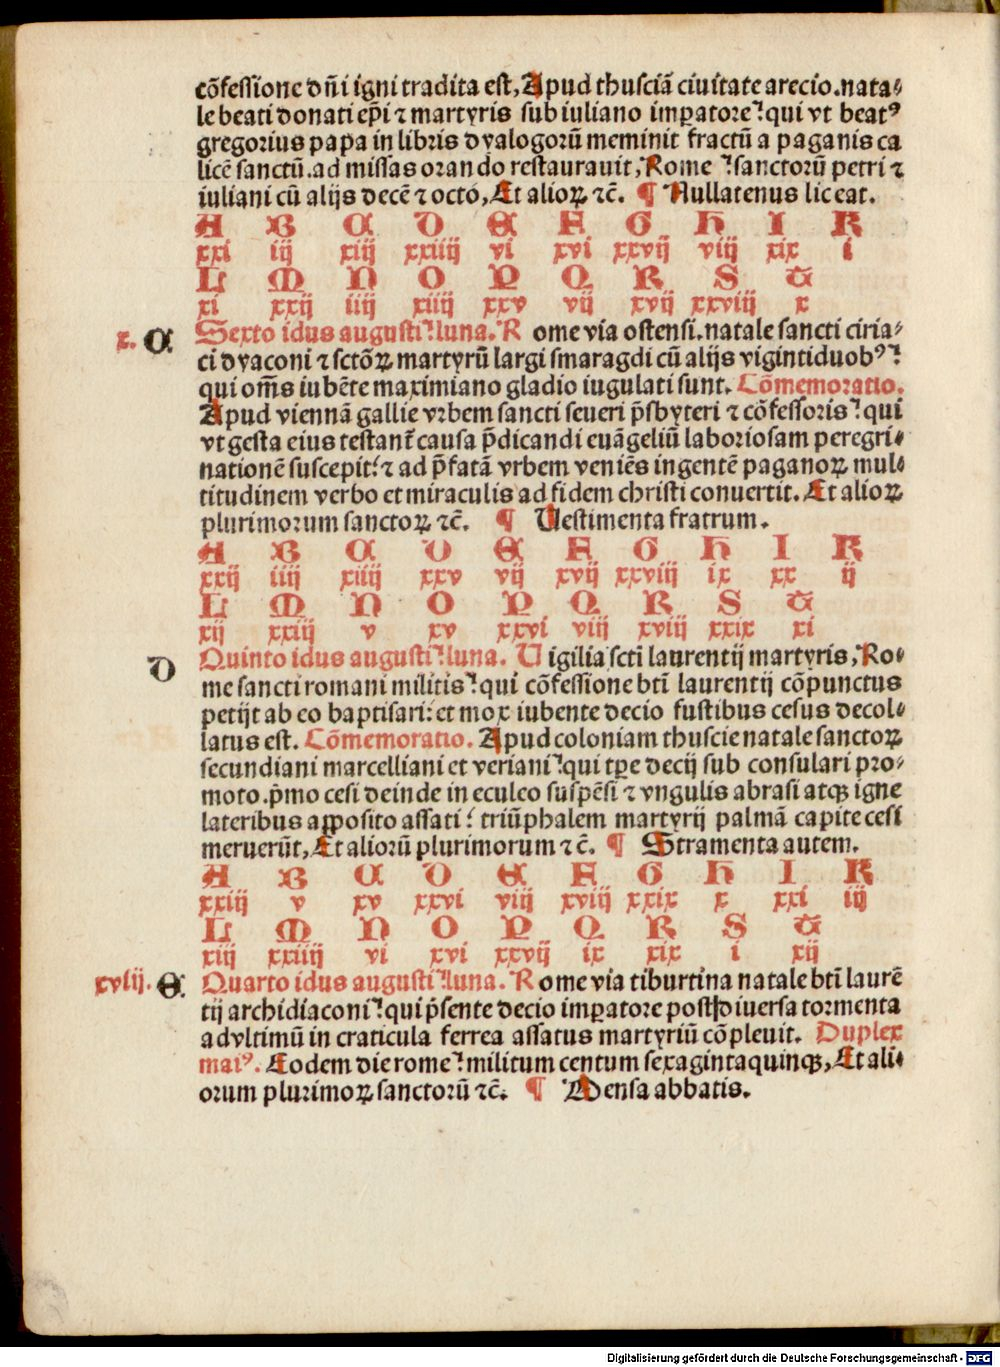 cõfessione dñi igni tradita est, Apud thusciã ciuitate arecio.nata-
le beati donati ep̃i ⁊ martyris sub iuliano imp̱atore? qui vt beatꝰ
gregorius papa in libris dyalogorũ meminit fractũ a paganis ca
licẽ sanctũ.ad missas orando restaurauit, Rome ?sanctorũ petri ⁊
iuliani cũ alijs decẽ ⁊ octo, Et alioꝝ ⁊c̃. ¶ Nullatenus liceat.
A B C D E F G H I K
xxi iij xiij xxiiij vi xvi xxvij viij xix i
L M N O P Q R S T
xi xxij iiij xiiij xxv vij xvij xxviij x
x. C Sexto idus augusti? luna. R ome via ostensi.natale sancti ciria-
ci dyaconi ⁊ sctõꝝ martyrũ largi smaragdi cũ alijs vigintiduobꝰ?
qui om̃s iubẽte maximiano gladio iugulati sunt. Cõmemoratio.
Apud viennã gallie vrbem sancti seueri p̃sbyteri ⁊ cõfessoris? qui
vt gesta eius testant̃ causa p̃dicandi euãgeliũ laboriosam peregri-
nationẽ suscepit: ⁊ ad p̃fatã vrbem veniẽs ingentẽ paganoꝝ mul-
titudinem verbo et miraculis ad fidem christi conuertit. Et alioꝝ
plurimorum sanctoꝝ ⁊c̃. ¶ Uestimenta fratrum.
A B C D E F G H I K
xxij iiij xiiij xxv vij xvij xxviij ix xx ij
L M N O P Q R S T
xij xxiij v xv xxvi viij xviij xxix xi
D Quinto idus augusti? luna. U igilia scti laurentij martyris, Ro-
me sancti romani militis? qui cõfessione bt̃i laurentij cõpunctus
petijt ab eo baptisari: et mox iubente decio fustibus cesus decol-
latus est. Cõmemoratio. Apud coloniam thuscie natale sanctoꝝ
secundiani marcelliani et veriani? qui tꝑe decij sub consulari pro-
moto.p̃mo cesi deinde in eculeo suspẽsi ⁊ vngulis abrasi atqꝫ igne
lateribus apposito assati: triũphalem martyrij palmã capite cesi
meruerũt, Et aliorũ plurimorum ⁊c̃. ¶ Stramenta autem.
A B C D E F G H I K
xxiij v xv xxvi viij xviij xxix x xxi iij
L M N O P Q R S T
xiij xxiiij vi xvi xxvij ix xix i xij
xvij. E Quarto idus augusti? luna. R ome via tiburtina natale bt̃i laurẽ
tij archidiaconi? qui p̃sente decio imꝑatore post diuersa tormenta
ad vltimũ in craticula ferrea assatus martyriũ cõpleuit. Duplex
maiꝰ. Eodem die rome? militum centum sexagintaquinqꝫ, Et ali-
orum plurimoꝝ sanctorũ ⁊c̃. ¶ Mensa abbatis.
Digitalisierung gefördert durch die Deutsche Forschungsgemeinschaft - DFG